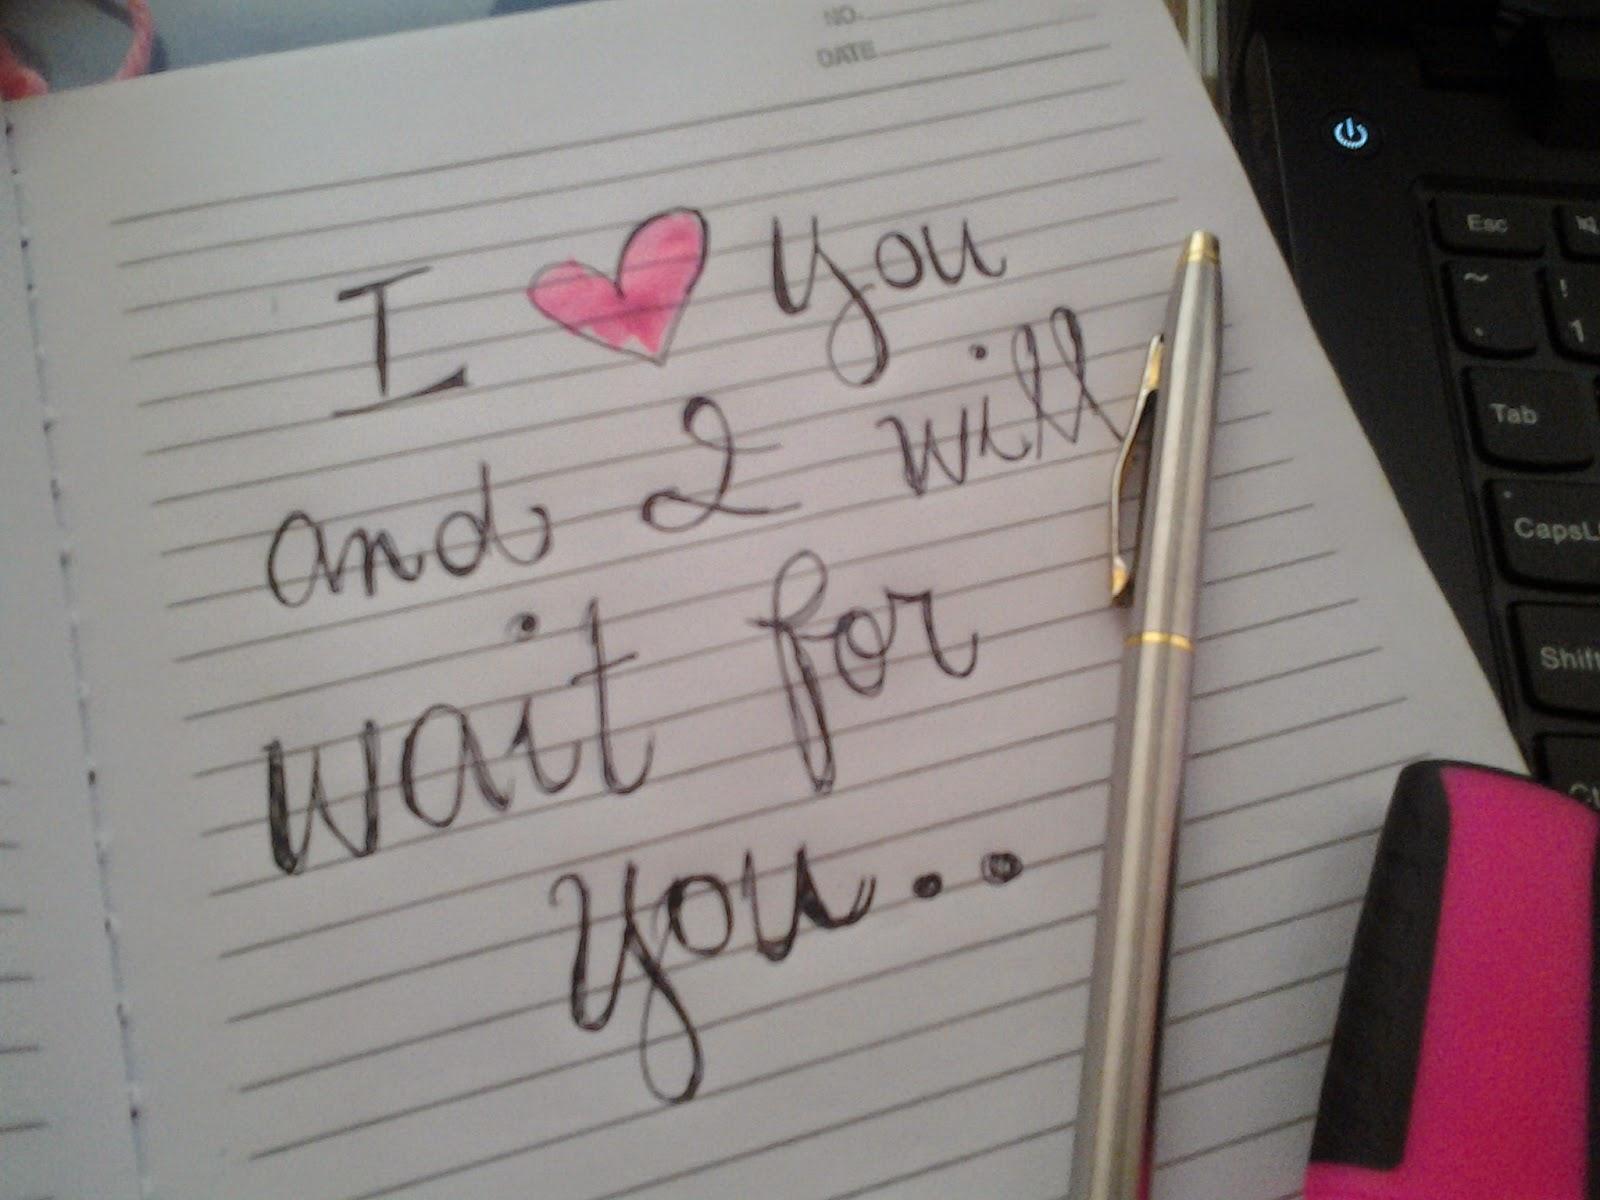 NO.
DATE
I ❤ you
and I will
wait for
you...
Esc
~
!
1
Tab
CapsL
Shift